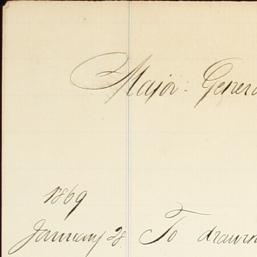 Major: Genera
1869
January 28 To drawin